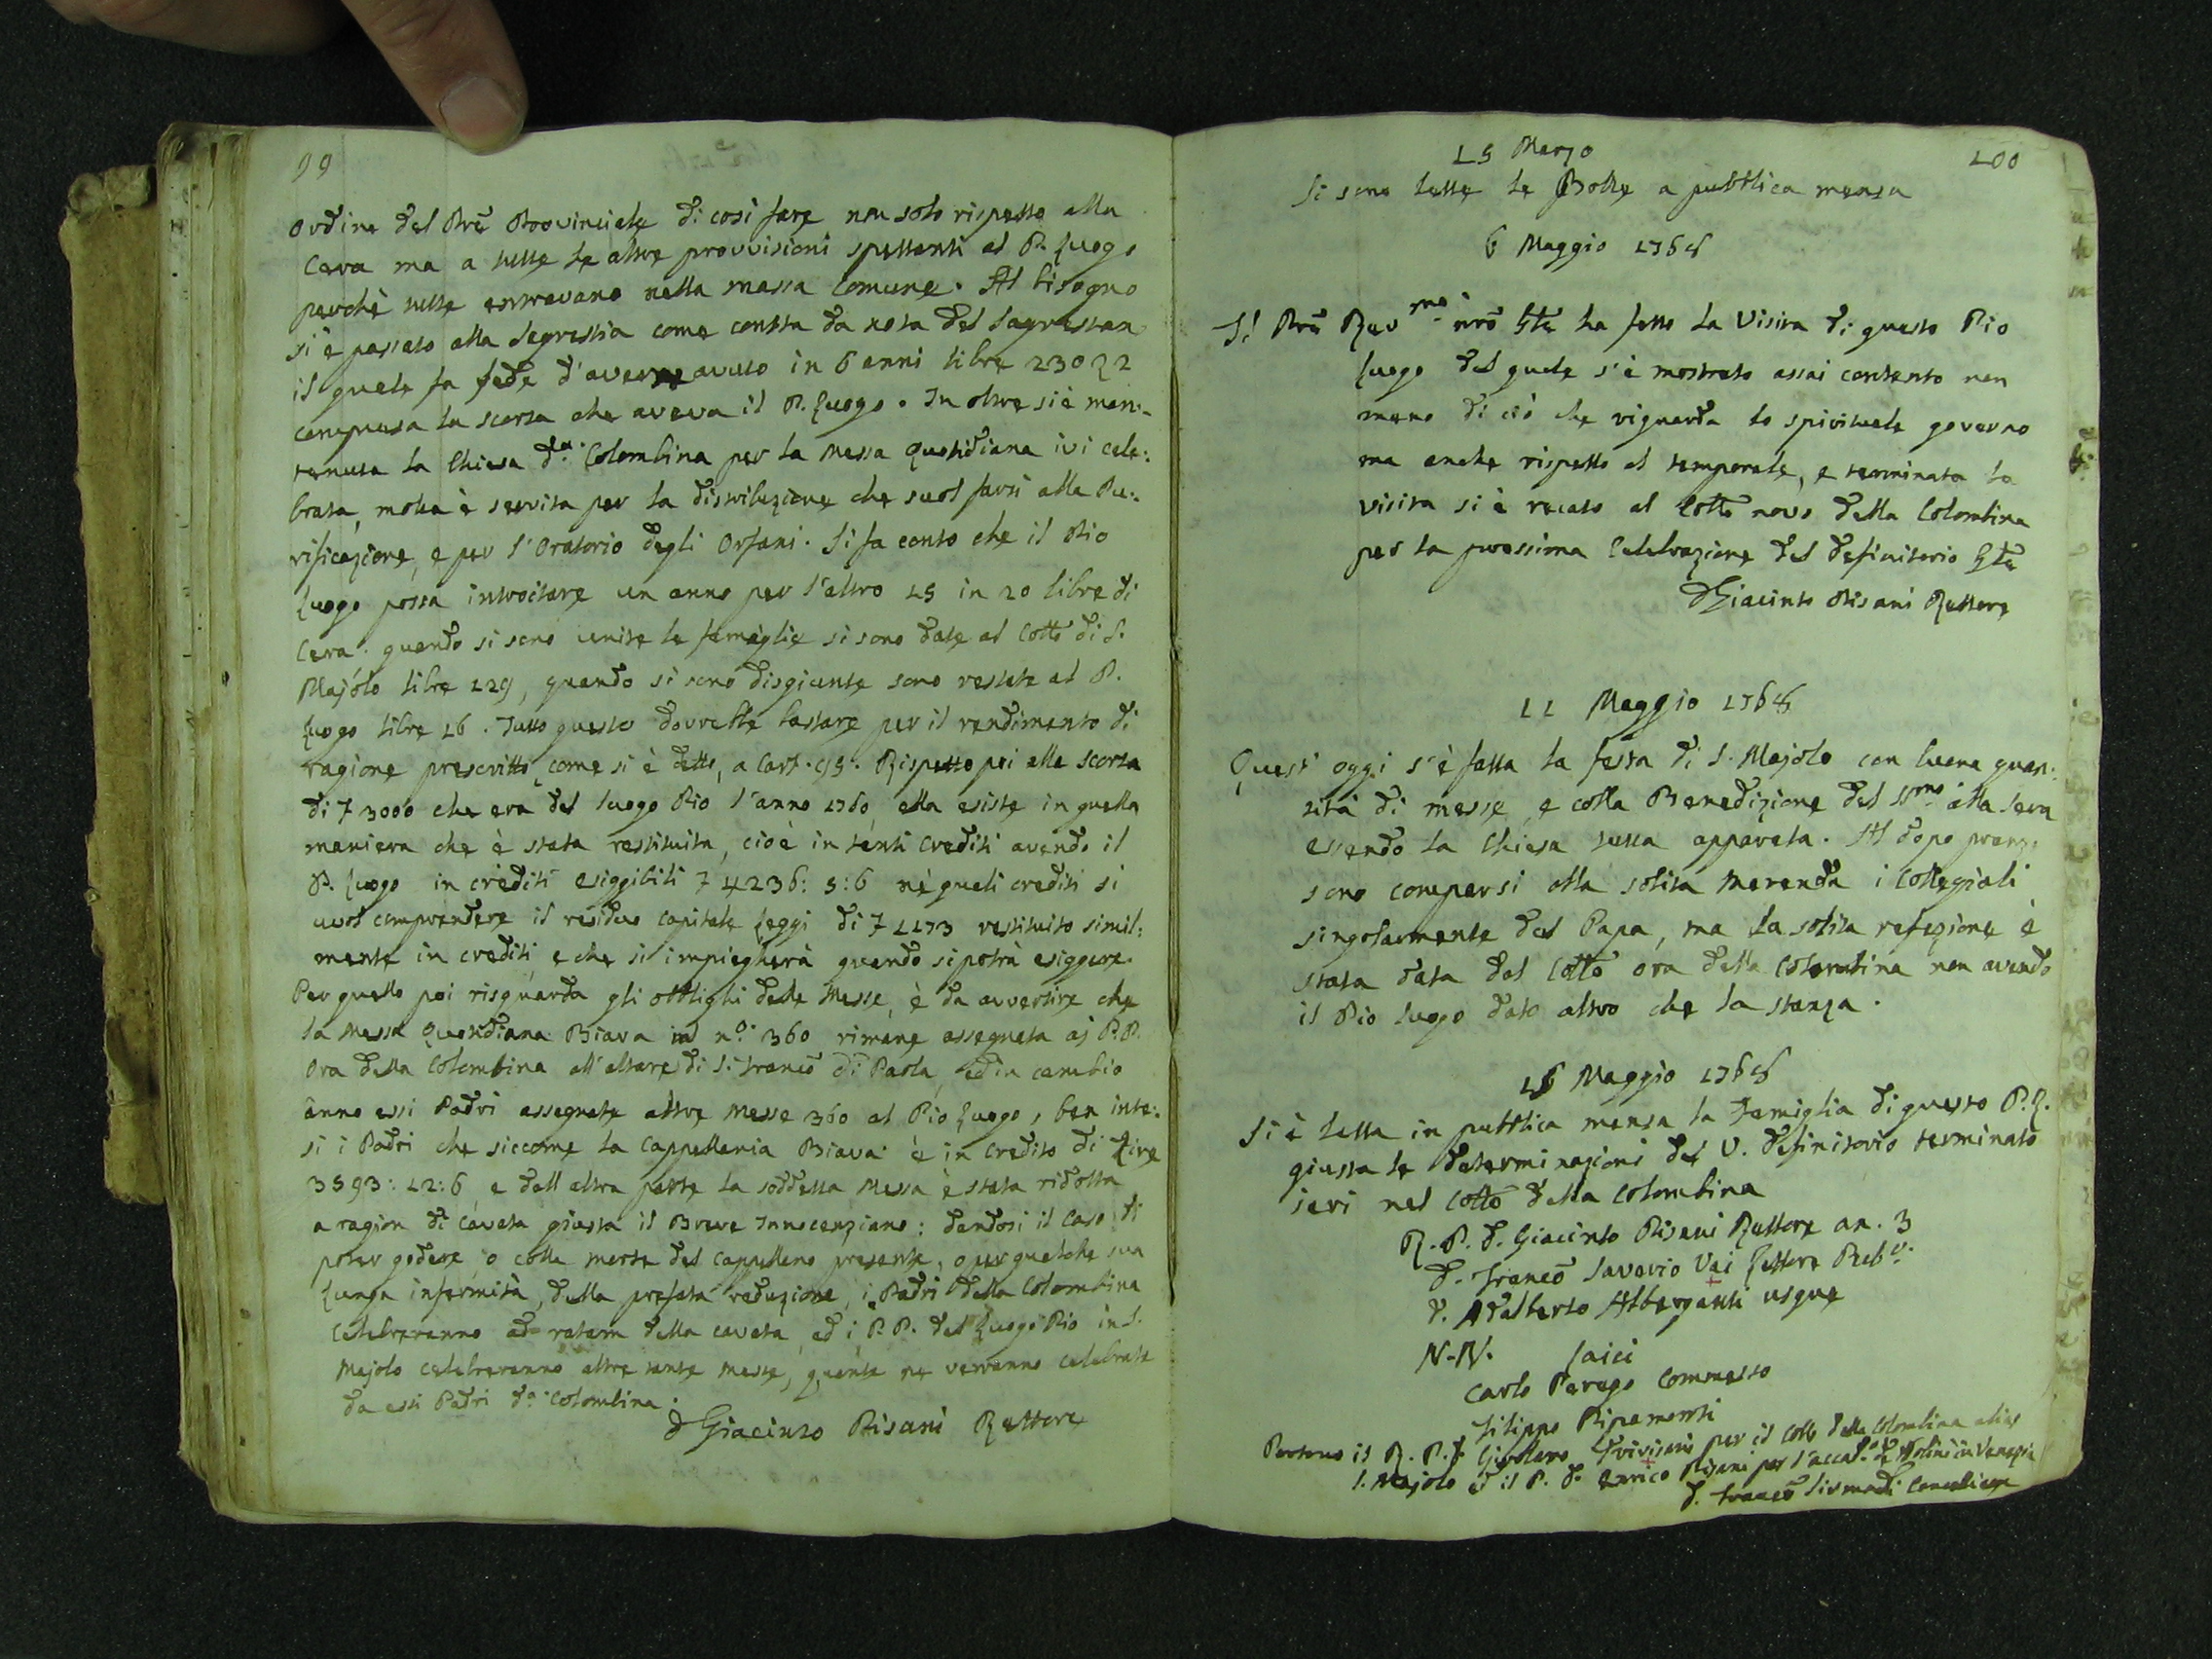 99
ordine del Prẽ Provinciale di così fare non solo rispetto alla
Cera ma a tutte le altre provvisioni spettanti al P. Luogo
perchè tutte entravano nella massa Comune. Al bisogno
si è passato alla Segrestia come consta da nota del Sagrestan
il quale fa fede d'averne avuto in 6 anni libre 230
compresa la scorta che aveva il P. Luogo. In oltre si è man-
tenuta la Chiesa d.ª Colombina per la Messa Quotidiana ivi cele:
brata, molta è servita per la distribuzione che suol farsi alla Pu:
rificazione, e per l'Oratorio degli Orfani. Si fa conto che il Pio
Luogo possa introitare un anno per l'altro 15 in 20 libre di
Cera. quando si sono unite le famiglie si sono date al Cottõ di S.
Majolo libre 129, quando si sono disgiunte sono restate al P.
Luogo libre 16. Tutto questo dovrebbe bastare per il rendimento di
ragione prescritto, come si è detto, a Cart. 95. Rispetto poi alla scorta
di 7 3000 che era del luogo Pio l'anno 1760, ella esiste in quella
maniera che è stata restituita, cioè in tanti Crediti avendo il
P. Luogo in crediti esiggibili 7 4236: 5:6 nè quali crediti si
vuol comprendere il residuo capitale Leggi di 7 1173 restituito simil:
mente in crediti, e che si impiegherà quando si potrà esiggere.
Per quello poi risguarda gli obblighi delle Messe, è da avvertire che
la Messa Quotidiana Biava in n.º 360 rimane assegnata ai P.P.
ora della Colombina all'altare di S. Francõ di Paola, ed in cambio
anno essi Padri assegnate altre Messe 360 al Pio Luogo, ben inte:
si i Padri che siccome la Cappellania Biava è in Credito di Lire
3593: 12:6, e dall altra parte la soddetta Messa è stata ridotta
a ragion di Cavata giusta il Breve Innocenziano: dandosi il Caso di
poter godere, o colla morte del Cappellano presente, o per qualche sua
lunga infermità, della prefata reduzione, i Padri della Colombina
Celebreranno ad ratam della cavata, ed i P.P. del Luogo Pio in S.
Majolo celebreranno altre tante Messe, quante ne verranno celebrate
da essi Padri d.ª Colombina.
D Giacinto Pisani Rettore
100
15 Marzo
Si sono lette le Bolle a pubblica mensa
6 Maggio 1768
Il Prẽ Rev.mo nrõ Gle ha fatto la Visita di questo Pio
Luogo del quale s'è mostrato assai contento non
meno di ciò che riguarda lo spirituale governo
ma anche rispetto al temporale, e terminata la
visita si è recato al Cottõ novo della Colombina
per la prossima Celebrazione del definitorio Gle
D Giacinto Pisani Rettore
11 Maggio 1768
Quest oggi s'è fatta la festa di S. Majolo con buona quan:
tità di messe, e colla Benedizione del SS.mo alla sera
essendo la Chiesa tutta apparata. Al dopo pranz.
sono comparsi alla solita merenda i Collegiali
singolarmente del Papa, ma la solita refezione è
stata data dal Cottõ ora della Colombina non avendo
il Pio luogo dato altro che la stanza.
16 Maggio 1768
Si è letta in pubblica mensa la Famiglia di questo P.L.
giusta le determinazioni del V. Definitorio terminato
ieri nel Cottõ della Colombina
R. P. D. Giacinto Pisani Rettore an. 3
D. Francõ Saverio Vai Lettore
P. Adalberto Alberganti usque
N.N. Laici
Carlo Perego Commesso
Filippo Ripamonti
Partono il R. P. D. Girolamo Trivisani per il Collo della Colombina alias
S. Majolo ed il P. D. Enrico Pisani per l'accad. de Nobili in Venezia
D. Francõ Sirmadi Cancelliere